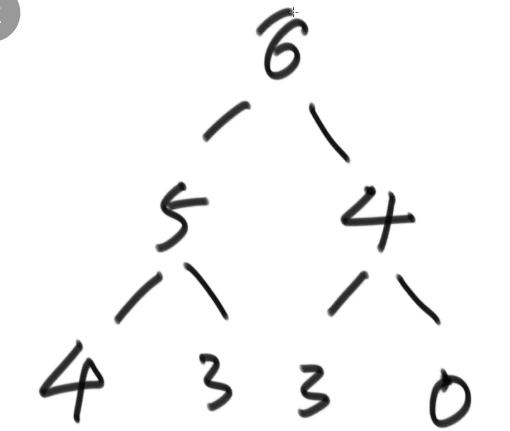 6
5 4
4 3 3 0